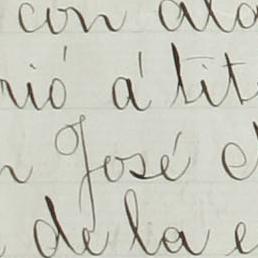 con
rió á tít
n José
de la e